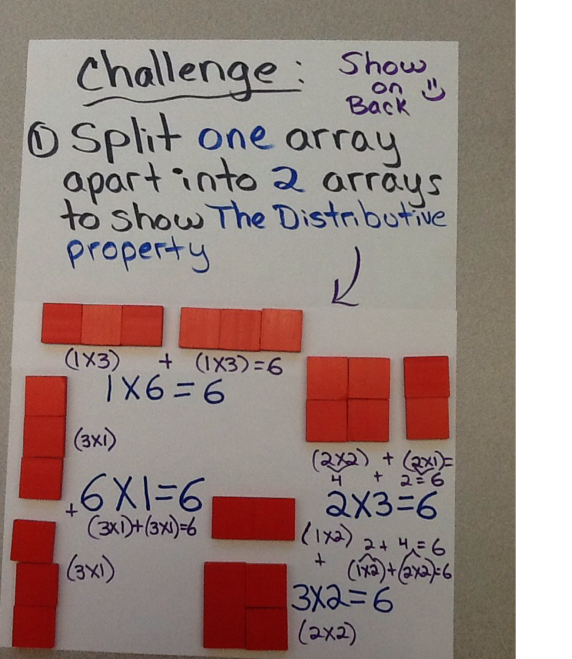 Challenge:
Show
on
Back
① Split one array
apart into 2 arrays
to show The Distributive
property
(1x3) + (1x3)=6
1X6=6
(3x1)
(2x2) + (2x1)=
4 + 2=6
+6X1=6
2X3=6
(3x1)+(3x1)=6
(1x2) 2+4=6
+ (1x2)+(2x2)=6
(3x1)
3X2=6
(2x2)